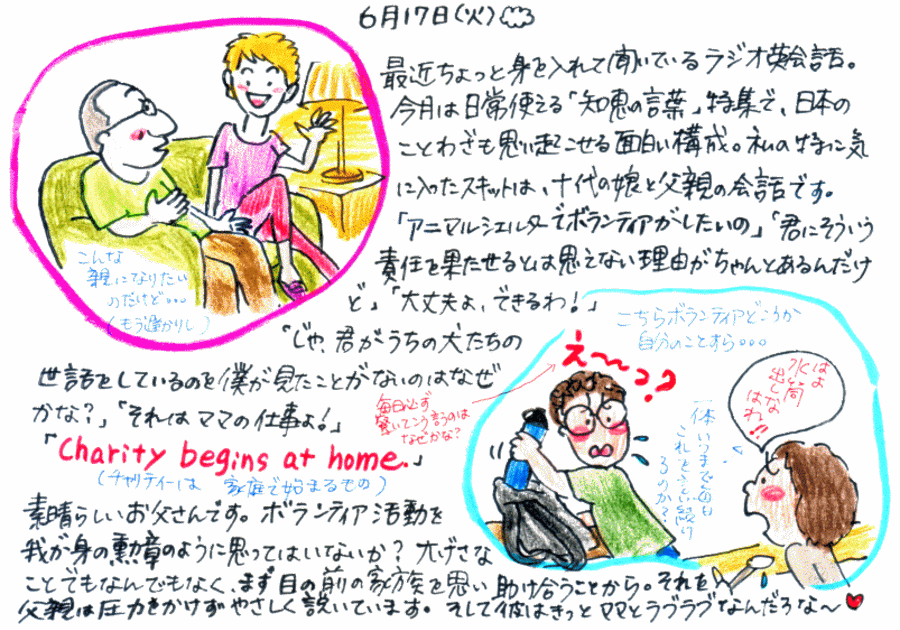 6月17日(火)
最近ちょっと身を入れて聞いているラジオ英会話。
今月は日常使える「知恵の言葉」特集で、日本の
ことわざも思い起こせる面白い構成。私の特に気
に入ったスキットは、十代の娘と父親の会話です。
「アニマルシェルターでボランティアがしたいの」「君にそういう
責任を果たせるとは思えない理由がちゃんとあるんだけ
ど」「大丈夫よ、できるわ!」
「じゃ、君がうちの犬たちの
世話をしているのを僕が見たことがないのはなぜ
かな?」「それはママの仕事よ!」
「Charity begins at home.」
(チャリティーは 家庭で始まるもの)
素晴らしいお父さんです。ボランティア活動を
我が身の勲章のように思ってはいないか? 大げさな
ことでもなんでもなく、まず目の前の家族を思い助け合うことから。それを
父親は圧力をかけずやさしく説いています。そして彼はきっとママとラブラブなんだろな〜
こんな
親になりたい
のだけど・・・
(もう遅かりし)
こちらボランティアどころか
自分のことすら・・・
え〜っ??
毎日必ず
驚いてこう言うのは
なぜかな?
はよ
水筒
出しな
はれ!!
一体いつまで毎日
これを言い続け
るのか?